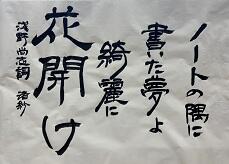 ノートの隅に
書いた夢よ
綺麗に
花開け
浅野尚志詞